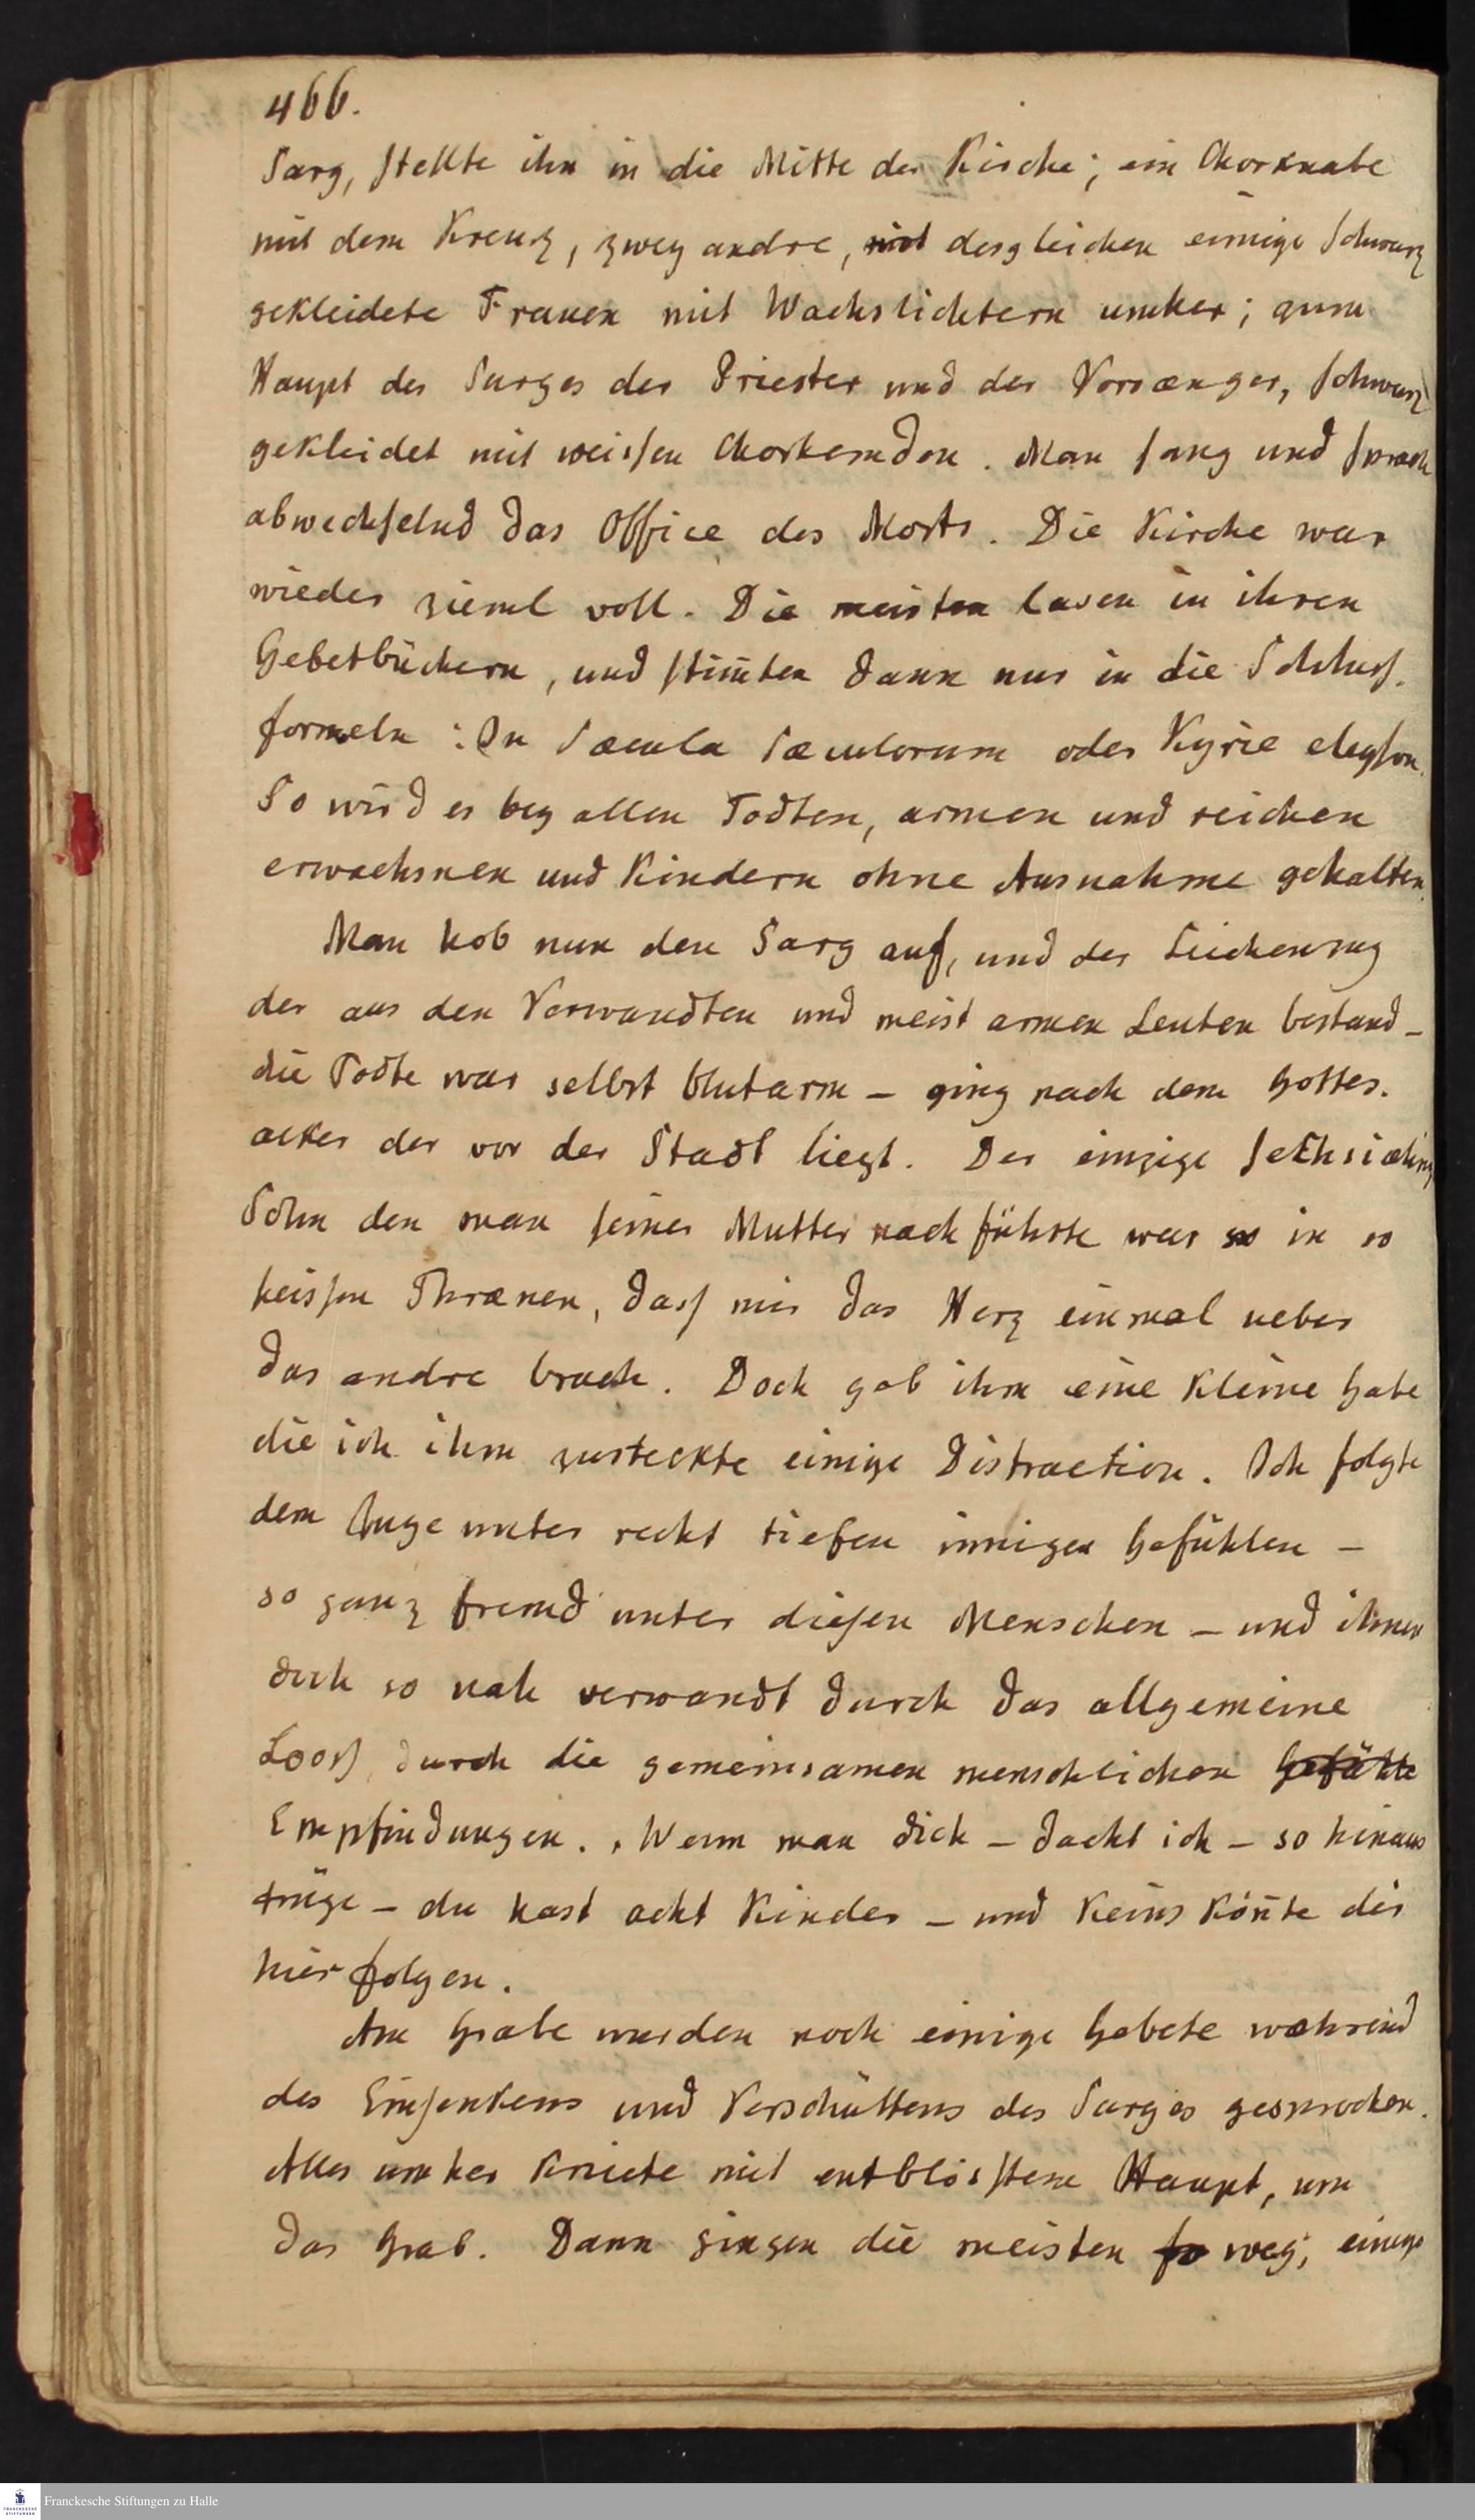 466.
Sarg, stellte ihn in die Mitte der Kirche; ein Chorknabe
mit dem Kreuz, zwey andre, mit desgleichen einige schwarz
gekleidete Frauen mit Wachslichtern umher; zum
Haupt des Sarges der Priester und der Vorsænger, schwarz
gekleidet mit weissen Chorhemden. Man sang und sprach
abwechselnd das Office des Morts. Die Kirche war
wieder zieml voll. Die meisten lasen in ihren
Gebetbüchern, und stim̄ten dann nur in die Schluss-
formeln: In Sæcula Sæculorum oder Kyrie eleyson.
So wird es bey allen Todten, armen und reichen
erwachsnen und Kindern ohne Ausnahme gehalten.
Man hob nun den Sarg auf, und der Leichenzug
der aus den Verwandten und meist armen Leuten bestand –
die Todte war selbst blutarm – ging nach dem Gottes-
acker der vor der Stadt liegt. Der einzige sechsjæhrig
Sohn den man seiner Mutter nachführte war so in so
heissen Thrænen, dass mir das Herz einmal ueber
das andre brach. Doch gab ihm eine kleine Gabe
die ich ihm zusteckte einige Distraction. Ich folgte
dem Zuge unter recht tiefen innigen Gefühlen –
so ganz fremd unter diesen Menschen – und ihnen
doch so nah verwandt durch das allgemeine
Looss, durch die gemeinsamen menschlichen Gefühle
Empfindungen. „Wenn man dich – dacht ich – so hinaus
trüge – du hast acht Kinder – und keins kön̄te dir
hier folgen.
Am Grabe wurden noch einige Gebete wæhrend
des Einsenkens und Verschüttens des Sarges gesprochen.
Alles umher kniete mit entblösstem Haupt, um
das Grab. Dann gingen die meisten fo weg; einige
Franckesche Stiftungen zu Halle